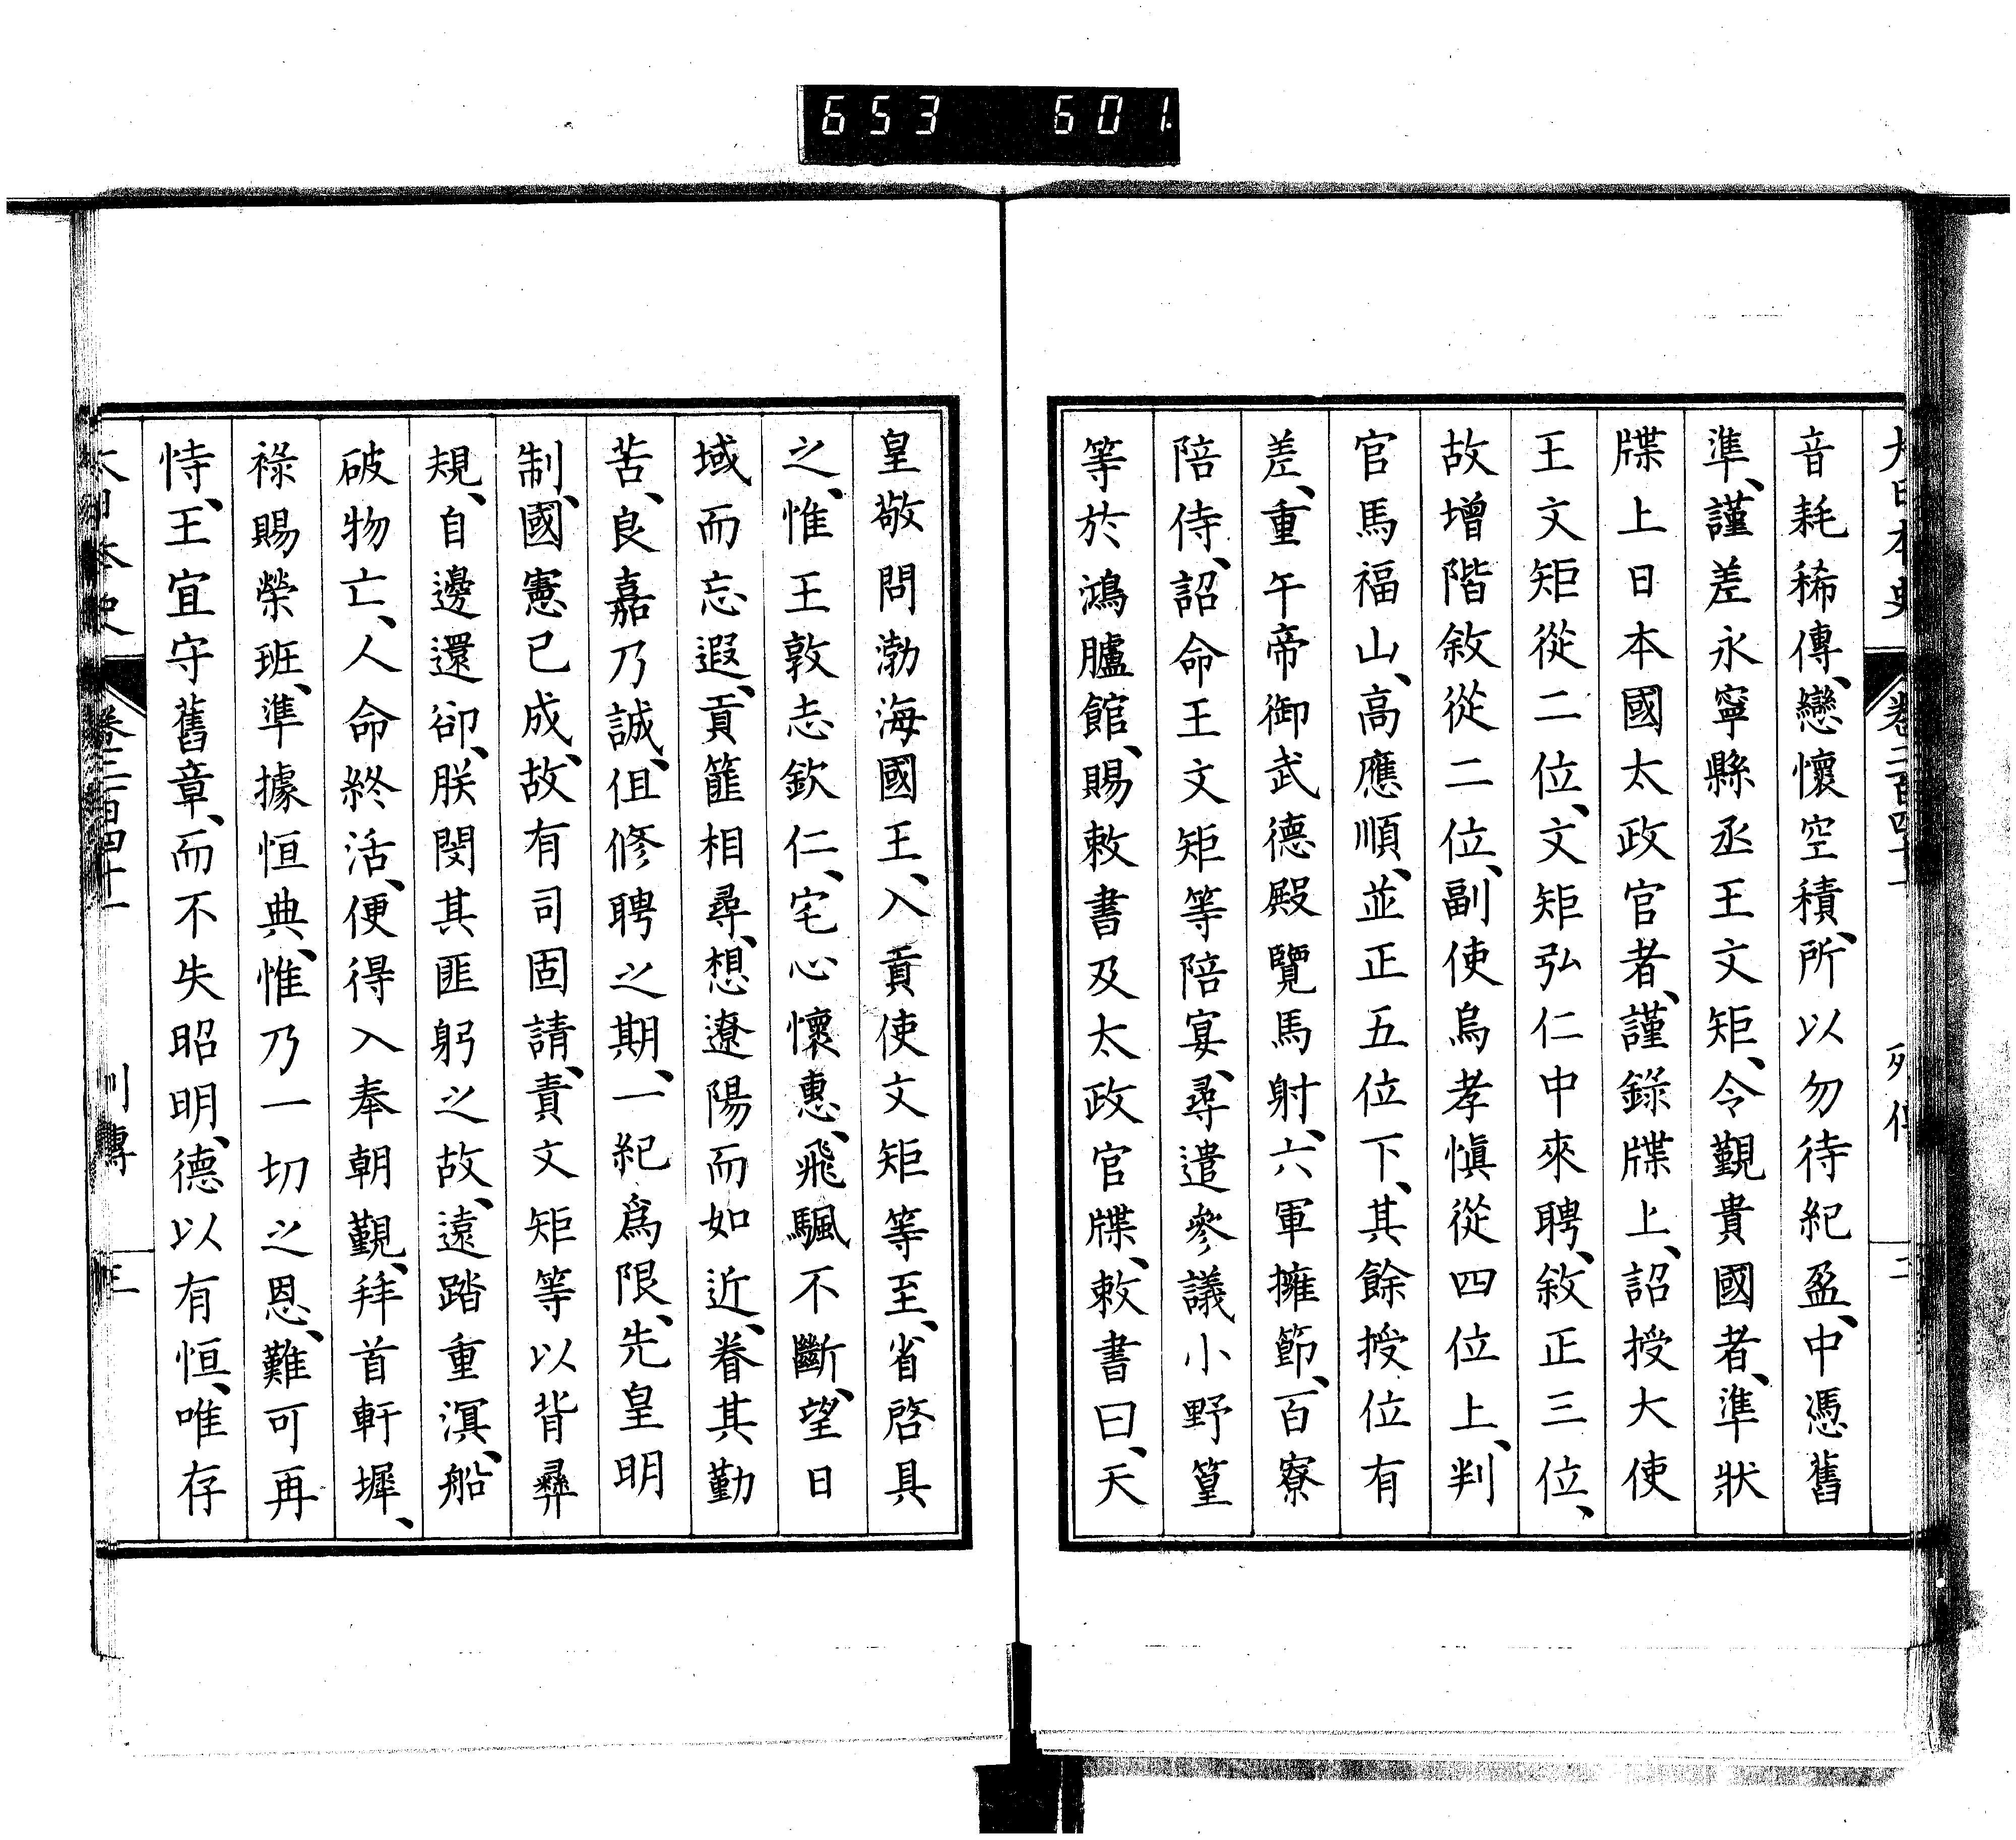 653 601
大日本史 卷二百四十一 列傳 二
音耗稀傳、戀懷空積、所以勿待紀盈、中憑舊
準、謹差永寧縣丞王文矩、令覲貴國者、準狀
牒上日本國太政官者、謹錄牒上、詔授大使
王文矩從二位、文矩弘仁中來聘、敘正三位、
故增階敘從二位、副使烏孝愼從四位上、判
官馬福山、高應順、並正五位下、其餘授位有
差、重午帝御武德殿覽馬射、六軍擁節、百寮
陪侍、詔命王文矩等陪宴、尋遣參議小野篁
等於鴻臚館、賜敕書及太政官牒、敕書曰、天
皇敬問渤海國王、入貢使文矩等至、省啓具
之、惟王敦志欽仁、宅心懷惠、飛颿不斷、望日
域而忘遐、貢篚相尋、想遼陽而如近、眷其勤
苦、良嘉乃誠、但修聘之期、一紀爲限、先皇明
制、國憲已成、故有司固請、責文矩等以背彝
規、自邊還卻、朕閔其匪躬之故、遠踏重溟、船
破物亡、人命終活、便得入奉朝覲、拜首軒墀、
祿賜榮班、準據恒典、惟乃一切之恩、難可再
恃、王宜守舊章、而不失昭明、德以有恒、唯存
大日本史 卷二百四十一 列傳 三